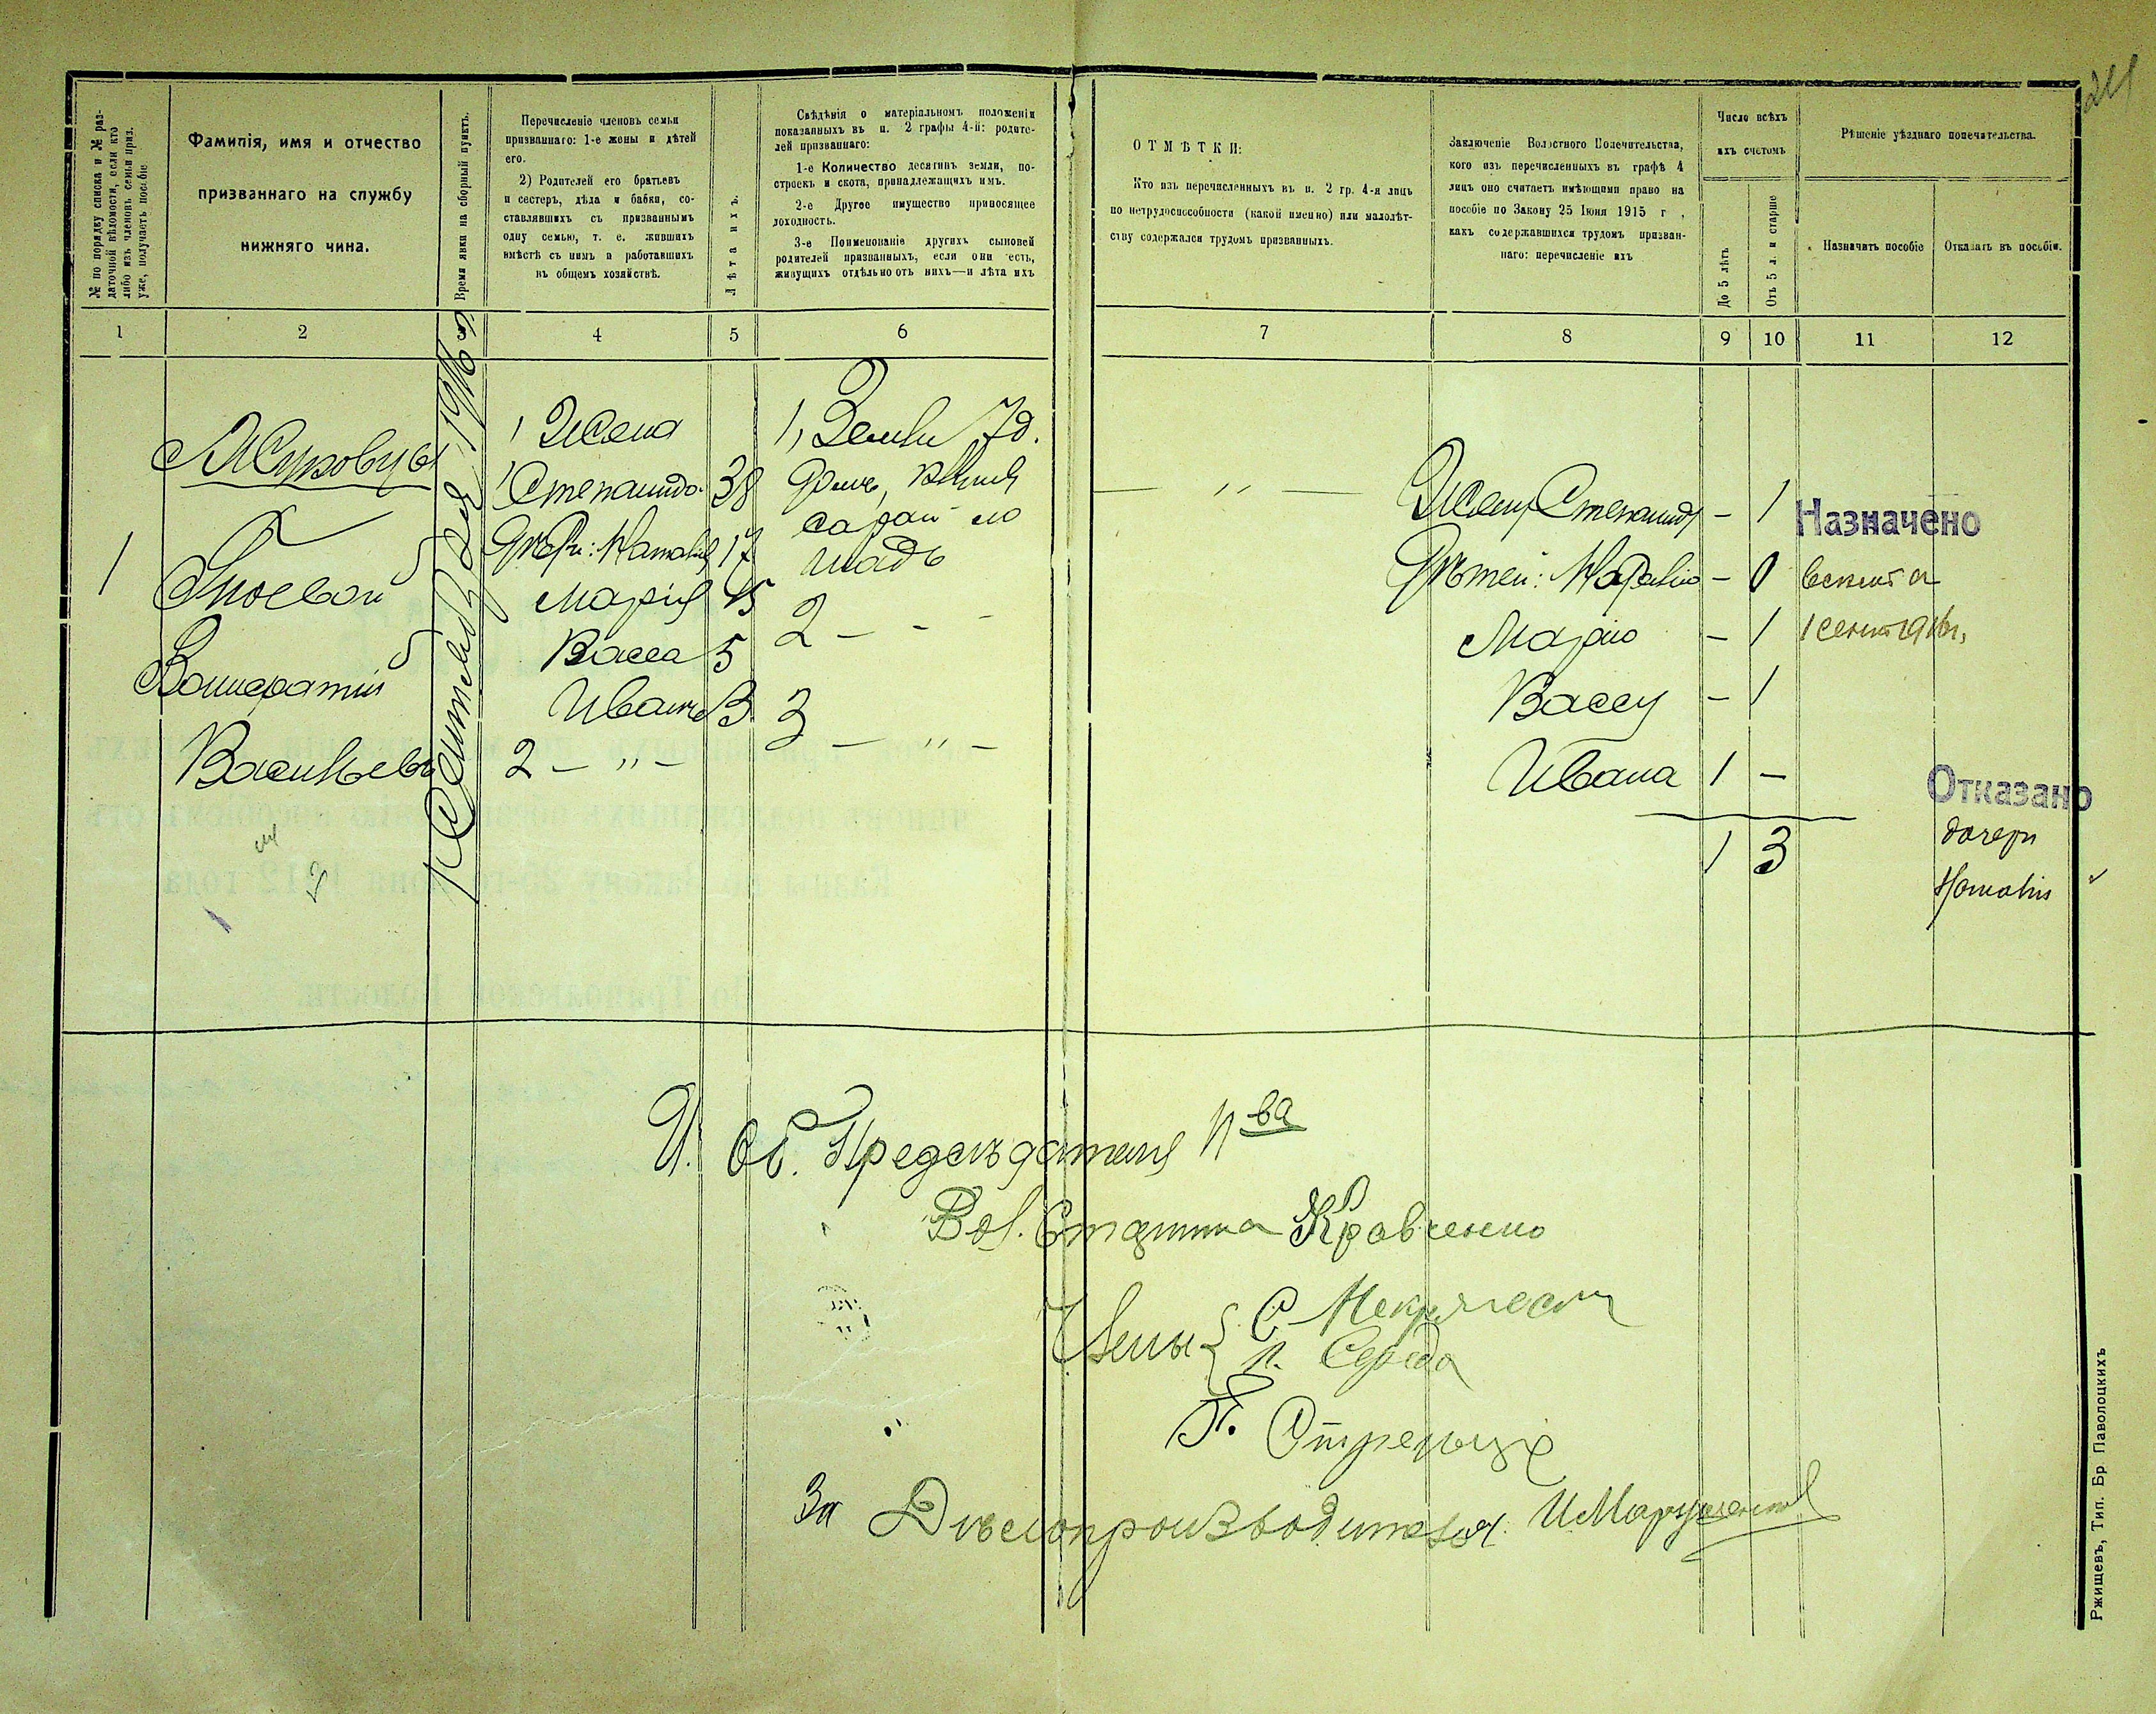 24
№ по порядку списка и № раз-
даточной вѣдомости, если кто
либо изъ членовъ семьи приз.
уже, получаетъ пособіе
Фамилія, имя и отчество
призваннаго на службу
нижняго чина.
Время явки на сборный пунктъ.
Перечисленіе членовъ семьи
призваннаго: 1-е жены и дѣтей
его.
2) Родителей его братьевъ
и сестеръ, дѣда и бабки, со-
ставлявшихъ съ призваннымъ
одну семью, т. е. жившихъ
вмѣстѣ съ нимъ и работавшихъ
въ общемъ хозяйствѣ.
Лѣта ихъ.
Свѣдѣнія о матеріальномъ положеніи
показанныхъ въ п. 2 графы 4-й: родите-
лей призваннаго:
1-е Количество десятинъ земли, по-
строекъ и скота, принадлежащихъ имъ.
2-е Другое имущество приносящее
доходность.
3-е Поименованіе другихъ сыновей
родителей призванныхъ, если они есть,
живущихъ отдѣльно отъ нихъ—и лѣта ихъ
ОТМѢТКИ:
Кто изъ перечисленныхъ въ п. 2 гр. 4-я лицъ
по нетрудоспособности (какой именно) или малолѣт-
ству содержался трудомъ призванныхъ.
Заключеніе Волостного Попечительства,
кого изъ перечисленныхъ въ графѣ 4
лицъ оно считаетъ имѣющими право на
пособіе по Закону 25 Іюня 1915 г ,
какъ содержавшихся трудомъ призван-
наго: перечисленіе ихъ
Число всѣхъ
ихъ счетомъ
До 5 лѣтъ
Отъ 5 л. и старше
Рѣшеніе уѣзднаго попечительства.
Назначить пособіе
Отказать въ пособіи.
1 2 4 5 6 7 8 9 10 11 12
1
Жуковцы
Гноевой
Васильевъ
1 Сентября 1916 г
1 Жена
Степанида 38
Дѣти: Наталія 17
Марія 15
Васса 5
Иванъ 3
2 – „ –
1, Земли 7 д.
сарай ло
шадь
2 – – –
3 – „ –
– „ –
Жену Степаниду – 1
Дѣтей: Наталію – 0
Марію – 1
Вассу – 1
Ивана 1 –
1 3
Назначено
1 сент 1916 г,
Отказано
дочери
Наталіи
И. об. Предсѣдателя П-ва
Вол. Старшина Кравченко
Члены { С
П. Середа
За Дѣлопроизводителя
Ржищевъ, Тип. Бр Паволоцкихъ